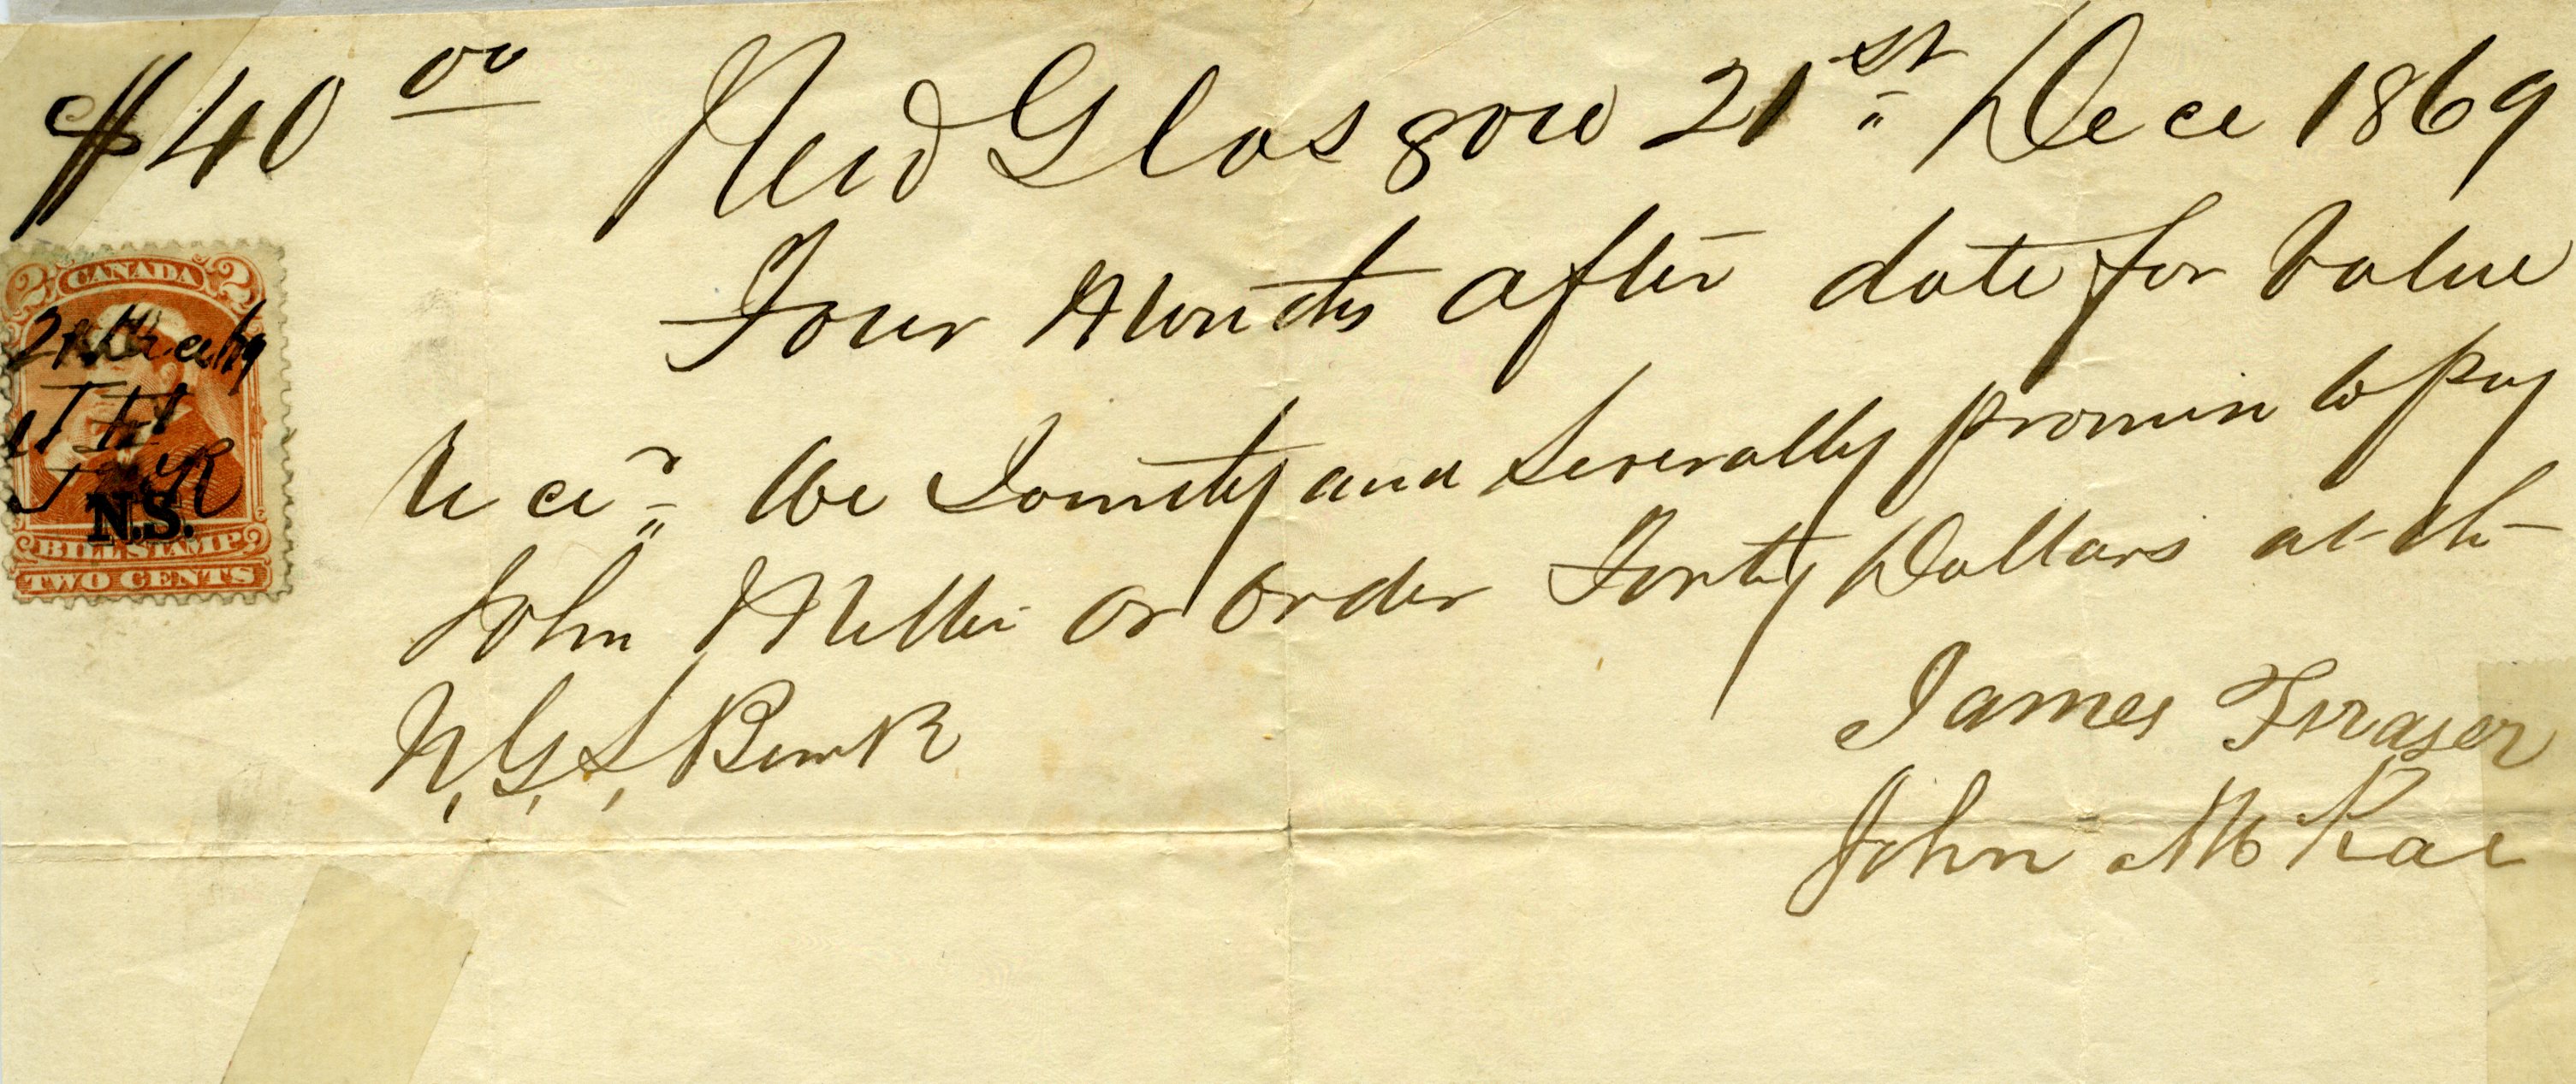 $40 00 New Glasgow 21st Dece 1869
Four Months after date for Value
Recd We Jointly and Severally promise to pay
John Miller or order Forty Dollars at the
N, G, S, Bank
James Fraser
John McKae
2 CANADA 2
21 Dece 69
J F
J McK
N.S.
2 BILL STAMP 2
TWO CENTS